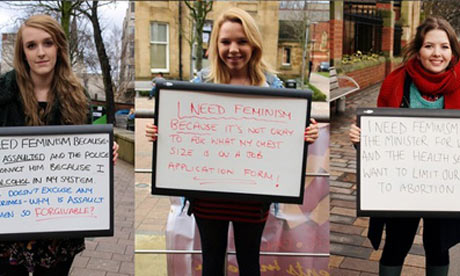 NEED FEMINISM BECAUSE
ASSAULTED AND THE POLICE
CONVICT HIM BECAUSE I
ALCOHOL IN MY SYSTEM.
DOESN'T EXCUSE ANY
CRIMES - WHY IS ASSAULT
SO FORGIVABLE?
I NEED FEMINISM
BECAUSE IT'S NOT OKAY
TO ASK WHAT MY CHEST
SIZE IS ON A JOB
APPLICATION FORM!
I NEED FEMINISM
THE MINISTER FOR
AND THE HEALTH
WANT TO LIMIT OUR
TO ABORTION